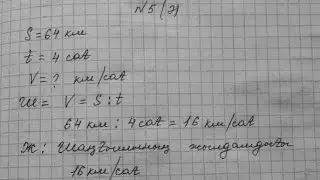 N5(э)
S=64 км
t = 4 сат
V=? км/сат
Ш= V = S:t
64 км : 4 сат = 16 км/сат
Ж: Шаңғышының жылдамдығы
16 км/сат